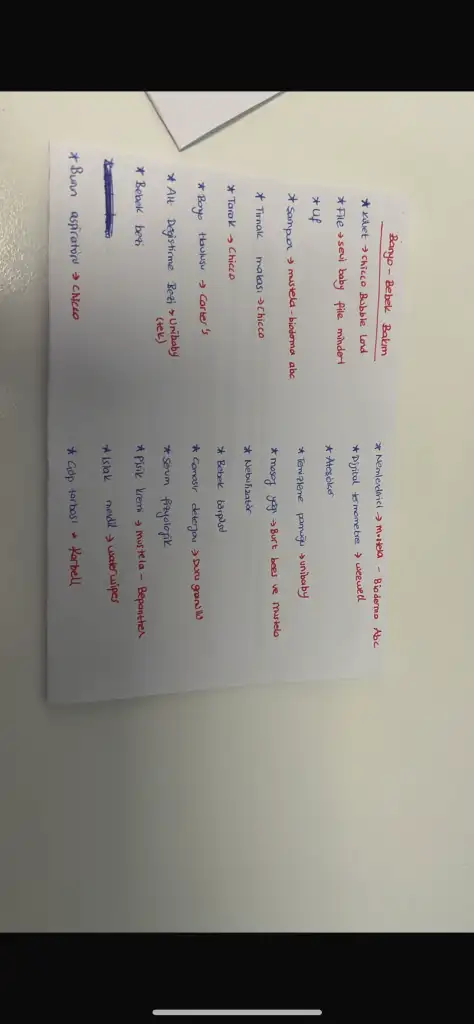 Banyo - Bebek Bakım
* Küvet → chicco Bubble Land
* File → sevi baby file minderi
* Lif
* Şampuan → mustela - bioderma abc
* Tırnak makası → Chicco
* Tarak → Chicco
* Banyo Havlusu → Carter's
* Alt Değiştirme Bezi → Unibaby (tek)
* Bebek bezi
* Burun aspiratörü → Chicco
* Nemlendirici → mustela - Bioderma Abc
* Dijital termometre → weewell
* Ateşölçer
* Temizleme pamuğu → unibaby
* masaj yağı → Burt bees ve mustela
* Nebulizatör
* Bebek
* Çamaşır deterjanı → Duru granül
* Serum fizyolojik
* Pişik kremi → mustela - Bepanthen
* Islak mendil → waterwipes
* Çöp torbası → Korbell